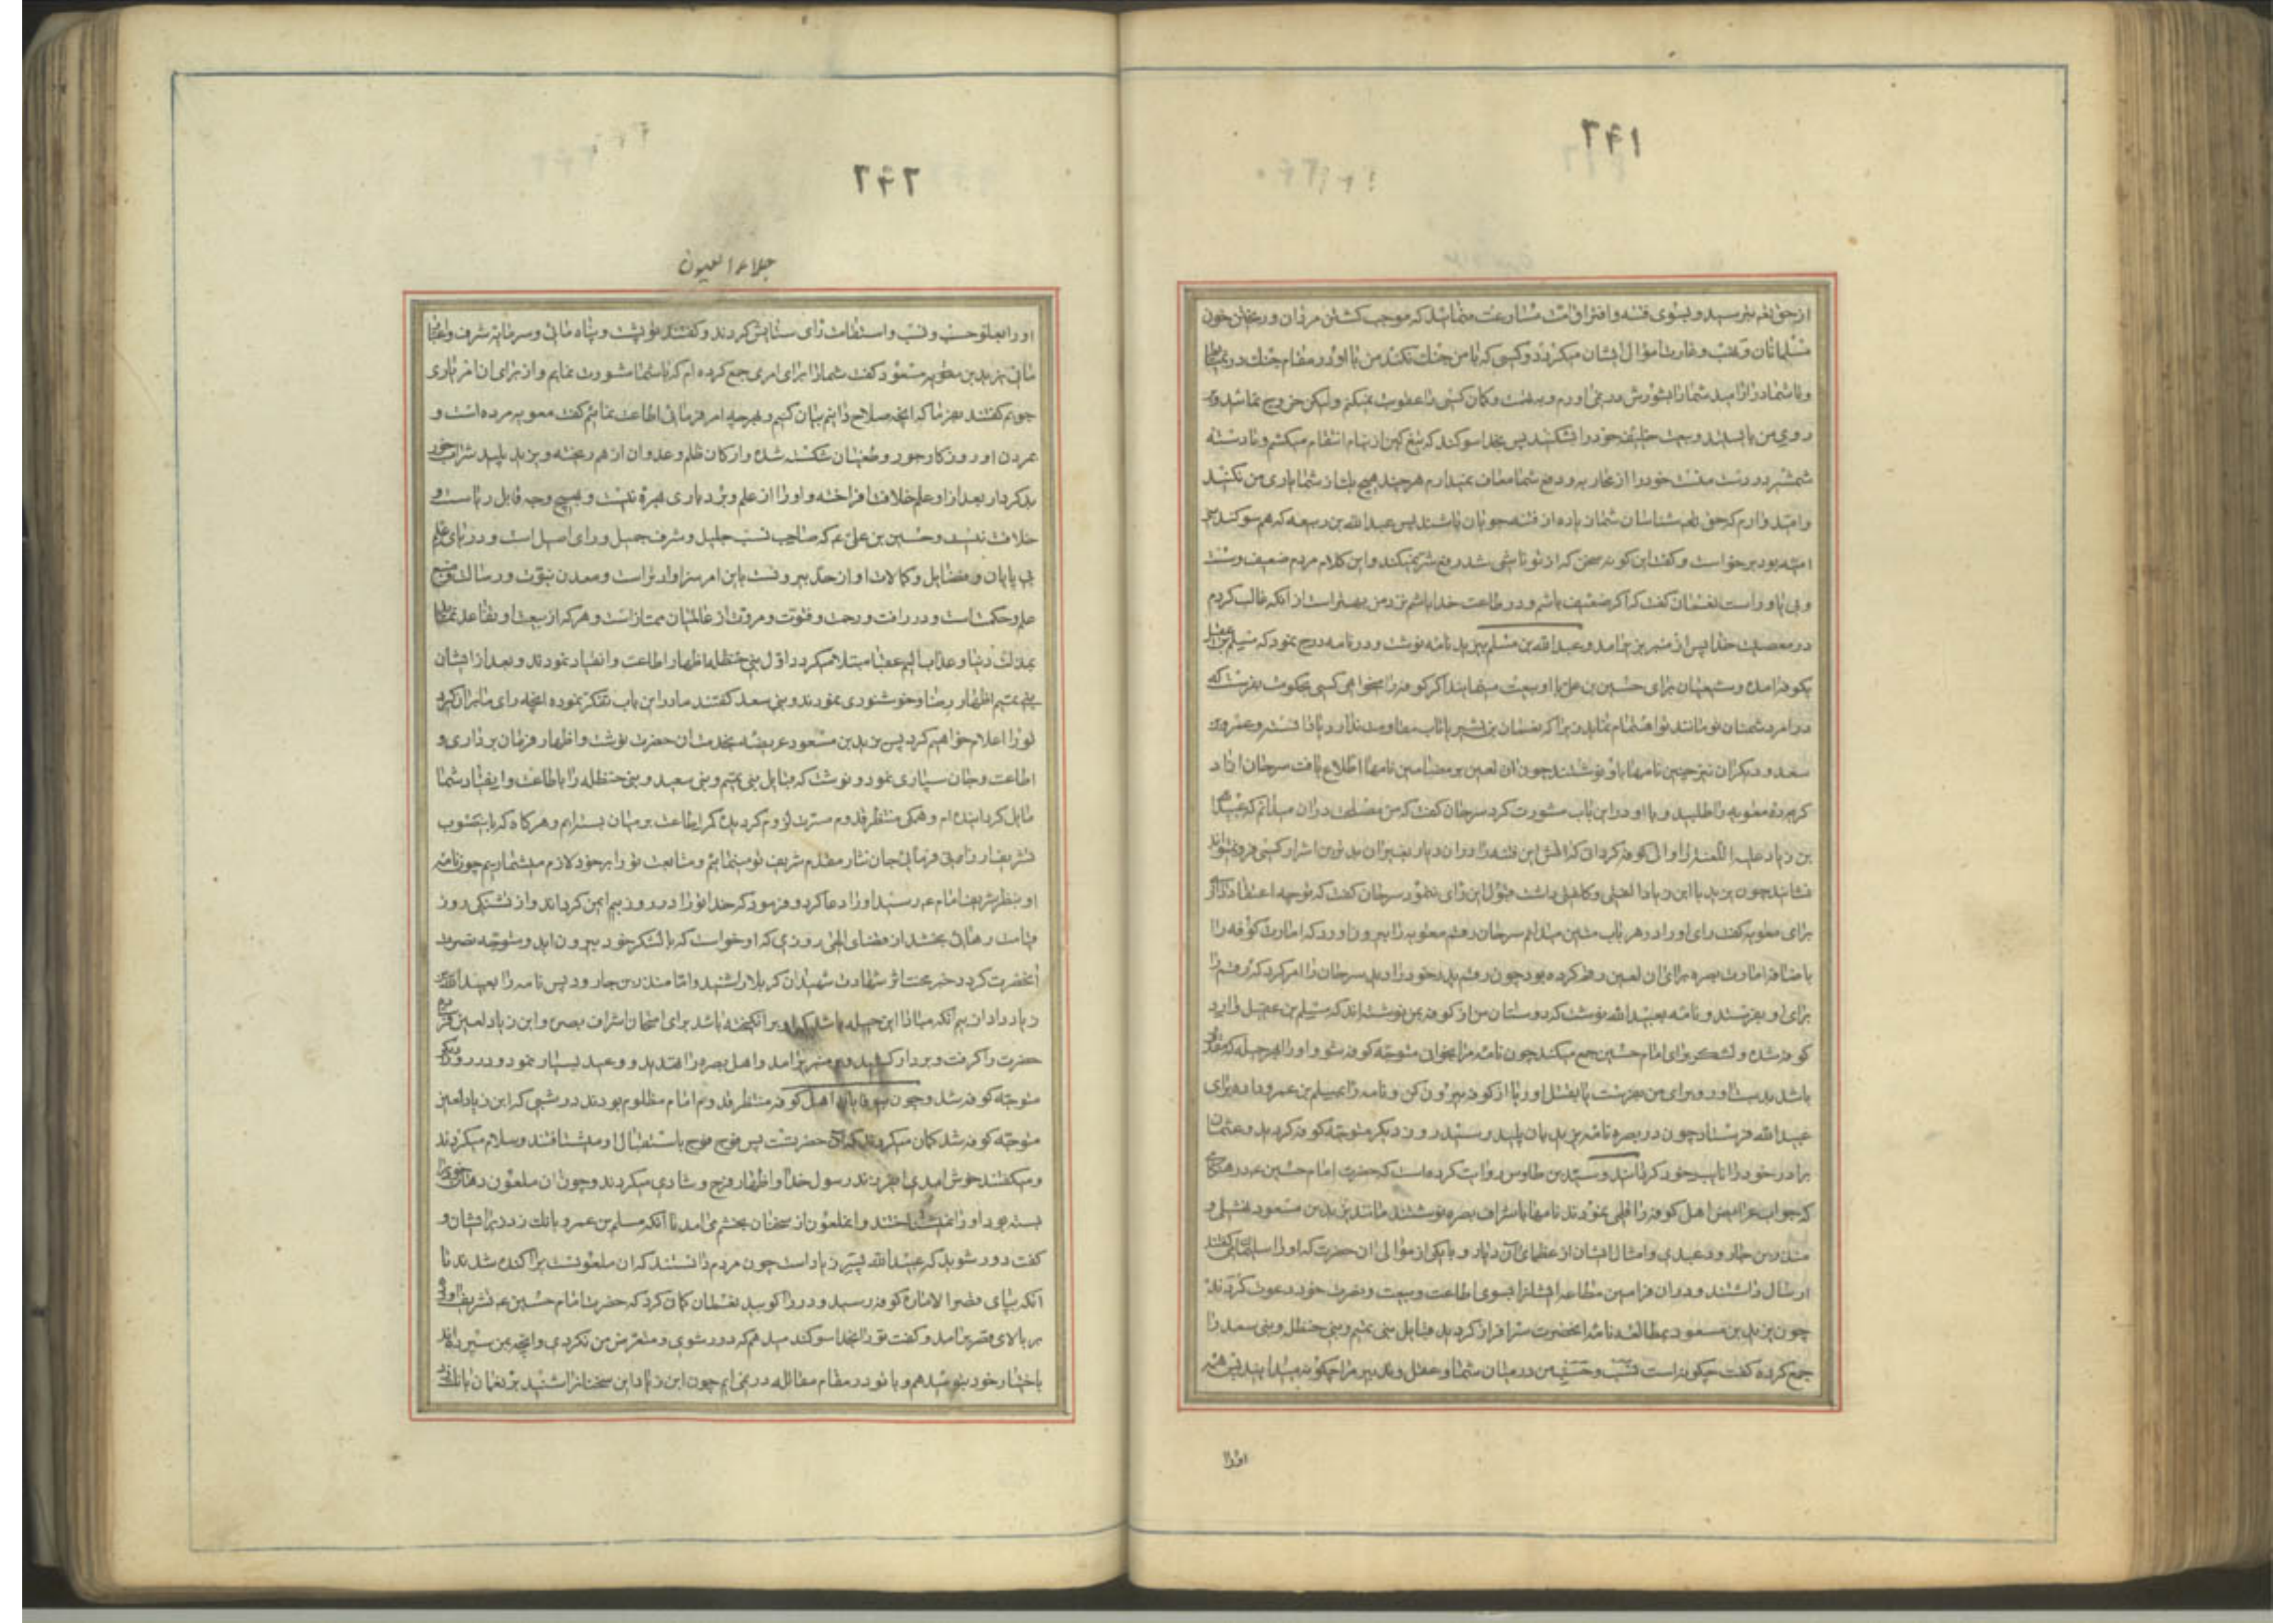 ۲۴۱
از حق تعالی بترسید و بسوی فتنه و افتراق امت مسارعت منمائید که موجب کشتن مردان و ریختن خون
مسلمانان و نهب و غارت اموال ایشان میگردد و کسی که با من جنک نکند من با او در مقام جنک در
و تا شما در ازاید شما را بشورش در نمی اورم و بتهمت و کمان کسی را عقوبت نمیکنم ولیکن خروج نمائید و
روی من بایستید و بیعت خلیفه خود را بشکنید پس بخدا سوکند که تیغ کین از نیام انتقام میکشم و تا دسته
شمشیر در دست منست خود را از محاربه و دفع شما معاف نمیدارم هر چند هیچ یک از شما یاری من نکنید
و امید دارم که حق شناسان شما زیاده از فتنه جویان باشند پس عبدالله بن ربیعه که هم سوکند بنی
امیه بود برخواست و کفت این کونه سخن که از تو ناشی شد رفع شر نمیکند و این کلام مردم ضعیف و سست
و بی یاور است نعمان کفت که اکر ضعیف باشم و در طاعت خدا باشم نزد من بهتر است از آنکه غالب کردم
در معصیت خدا پس از منبر بزیر امد و عبدالله بن مسلم بیزید نامه نوشت و در نامه درج نمود که مسلم بن عقیل
بکوفه امده و شیعیان برای حسین بن علی با او بیعت مینمایند اکر کوفه را میخواهی کسی بحکومت بفرست که
در امر دشمنان تو مانند تو اهتمام نماید زیرا که نعمان بن بشیر تاب مقاومت ندارد یا
سعد و دیکران نیز چنین نامها باو نوشتند چون ان لعین بر مضامین نامها اطلاع یافت سرجان ازاد
کرده معویه را طلبید و با او در این باب مشورت کرد سرجان کفت که من مصلحت در ان میدانم که عبیدالله
بن زیاد علیه اللعنه را والی کوفه کردانی که اتش این فتنه را در ان دیار بغیر از ان بدترین اشرار کسی فرو نمیتواند
نشاند چون یزید با ابن زیاد کلفتی داشت قبول این رای ننمود سرجان کفت که توجه اعتقاد داری اکر
برای معویه کفت رای او را در هر باب متین میدانم سرجان رقم معویه را بیرون اورد که امارت کوفه را
با ضافه امارت بصره برای ان لعین رقم کرده بود چون رقم پدر خود را دید سرجان را امر کرد که رقم را
برای او بفرستد و نامه بعبیدالله نوشت که دوستان من از کوفه بمن نوشته اند که مسلم بن عقیل وارد
کوفه شده و لشکر برای امام حسین جمع میکند چون نامه مرا بخوانی متوجه کوفه شو و او را بهر حیله که مقدور
باشد بدست اور و برای من بفرست یا بقتل اور یا از کوفه بیرون کن و نامه را بمسلم بن عمرو داده برای
عبیدالله فرستاد چون در بصره نامه یزید بان پلید رسید روز دیکر متوجه کوفه کردید و عثمان
برادر خود را نایب خود کردانید و سید بن طاوس روایت کرده است که حضرت امام حسین ع در هنکامی
که جواب عرایض اهل کوفه را قلمی نمودند نامها باشراف بصره نوشتند مانند یزید بن مسعود نهشلی و
منذر بن جارود عبدی و امثال ایشان از عظمای آن دیار و با یکی از موالی ان حضرت که او را سلیمان می کفتند
ارسال داشتند و در ان فرامین مطاعه ایشانرا بسوی اطاعت و بیعت و نصرت خود دعوت کردند
چون یزید بن مسعود بمطالعه نامه انحضرت سرافراز کردید قبایل بنی تمیم و بنی حنظله و بنی سعد را
جمع کرده کفت چکونه است نسب و حسب من در میان شما و عقل و تدبیر مرا چکونه میدانید پس همه
اورا
۲۴۲
جلاء العیون
او را بعلو حسب و نسب و استقامت رای ستایش کردند و کفتند تو پشت و پناه مائی و سرمایه شرف و اعتبار
مائی یزید بن مسعود کفت شما را برای امری جمع کرده ام که با شما مشورت نمایم و از برای ان امر یاری
جویم کفتند بفرما که انچه صلاح دانیم بیان کنیم و بهر چه امر فرمائی اطاعت نمائیم کفت معویه مرده است و
بمردن او روزکار جور و طغیان شکسته شده و ارکان ظلم و عدوان از هم ریخته و یزید پلید شراب خور
بدکردار بعد از او علم خلافت افراخته و او را از علم و بردباری بهره نیست و بهیچ وجه قابل ریاست و
خلافت نیست و حسین بن علی ع که صاحب نسب جلیل و شرف جمیل و رای اصیل است و دریای علم
بی پایان و فضایل و کمالات او از حد بیرونست باین امر سزاوارتر است و معدن نبوت و رسالت و منبع
علم و حکمت است و در رافت و رحمت و فتوت و مروت از عالمیان ممتاز است و هر که از بیعت او تقاعد نماید
بمذلت دنیا و عذاب الیم عقبا مبتلا میکردد اول بنی حنظله اظهار اطاعت و انقیاد نمودند و بعد از ایشان
بنی تمیم اظهار رضا و خوشنودی نمودند و بنی سعد کفتند ما در این باب تفکر نموده انچه رای ما بران قرار
تو را اعلام خواهیم کرد پس یزید بن مسعود عریضه بخدمت ان حضرت نوشت و اظهار فرمان برداری و
اطاعت و جان سپاری نمود و نوشت که قبایل بنی تمیم و بنی سعید و بنی حنظله را باطاعت و انقیاد شما
مایل کردانیده ام و همکی منتظر قدوم مسرت لزوم کردیده کمر اطاعت بر میان بسته ایم و هر کاه که باین صوب
تشریف ارزانی فرمائی جان نثار مقدم شریف تو مینمائیم و متابعت تو را بر خود لازم میشماریم چون نامه
او بنظر شریف امام ع رسید او را دعا کرد و فرمود که خدا تو را در روز بیم ایمن کرداند و از تشنکی روز
قیامت رهائی بخشد از قضای الهی روزی که او خواست که با لشکر خود بیرون اید و متوجه نصرت
انحضرت کردد خبر محنت اثر شهادت شهیدان کربلا را شنید و اما منذر بن جارود پس نامه را بعبیدالله بن
زیاد داد از بیم آنکه مبادا این حیله باشد که او بر انکیخته باشد برای امتحان اشراف بصره و ابن زیاد لعین
حضرت را کرفت و بردار کشید و بر منبر برامد و اهل بصره را تهدید و وعید بسیار نمود و در روز دیکر
متوجه کوفه شد و چون اهل کوفه منتظر قدوم امام مظلوم بودند در شبی که ابن زیاد لعین
متوجه کوفه شد کمان میکردند که ان حضرتست پس فوج فوج باستقبال او میشتافتند و سلام میکردند
و میکفتند خوش امدی ای فرزند رسول خدا و اظهار فرح و شادی میکردند و چون ان ملعون دهان خود را
بسته بود او را نمیشناختند و انملعون از سخنان بخشم می امد تا آنکه مسلم بن عمرو بانک زد بر ایشان و
کفت دور شوید که عبیدالله پسر زیاد است چون مردم دانستند که ان ملعونست پراکنده شدند تا
انکه بپای قصر الاماره کوفه رسید و در را کوبید نعمان کمان کرد که حضرت امام حسین ع تشریف اورده
بر بالای قصر برامد و کفت تو را بخدا سوکند میدهم که دور شوی و متعرض من نکردی و انچه بمن سپرده اند
باختیار خود بتو نمیدهم و با تو در مقام مقاتله در نمی ایم چون ابن زیاد این سخنانرا شنید بر نعمان بانک